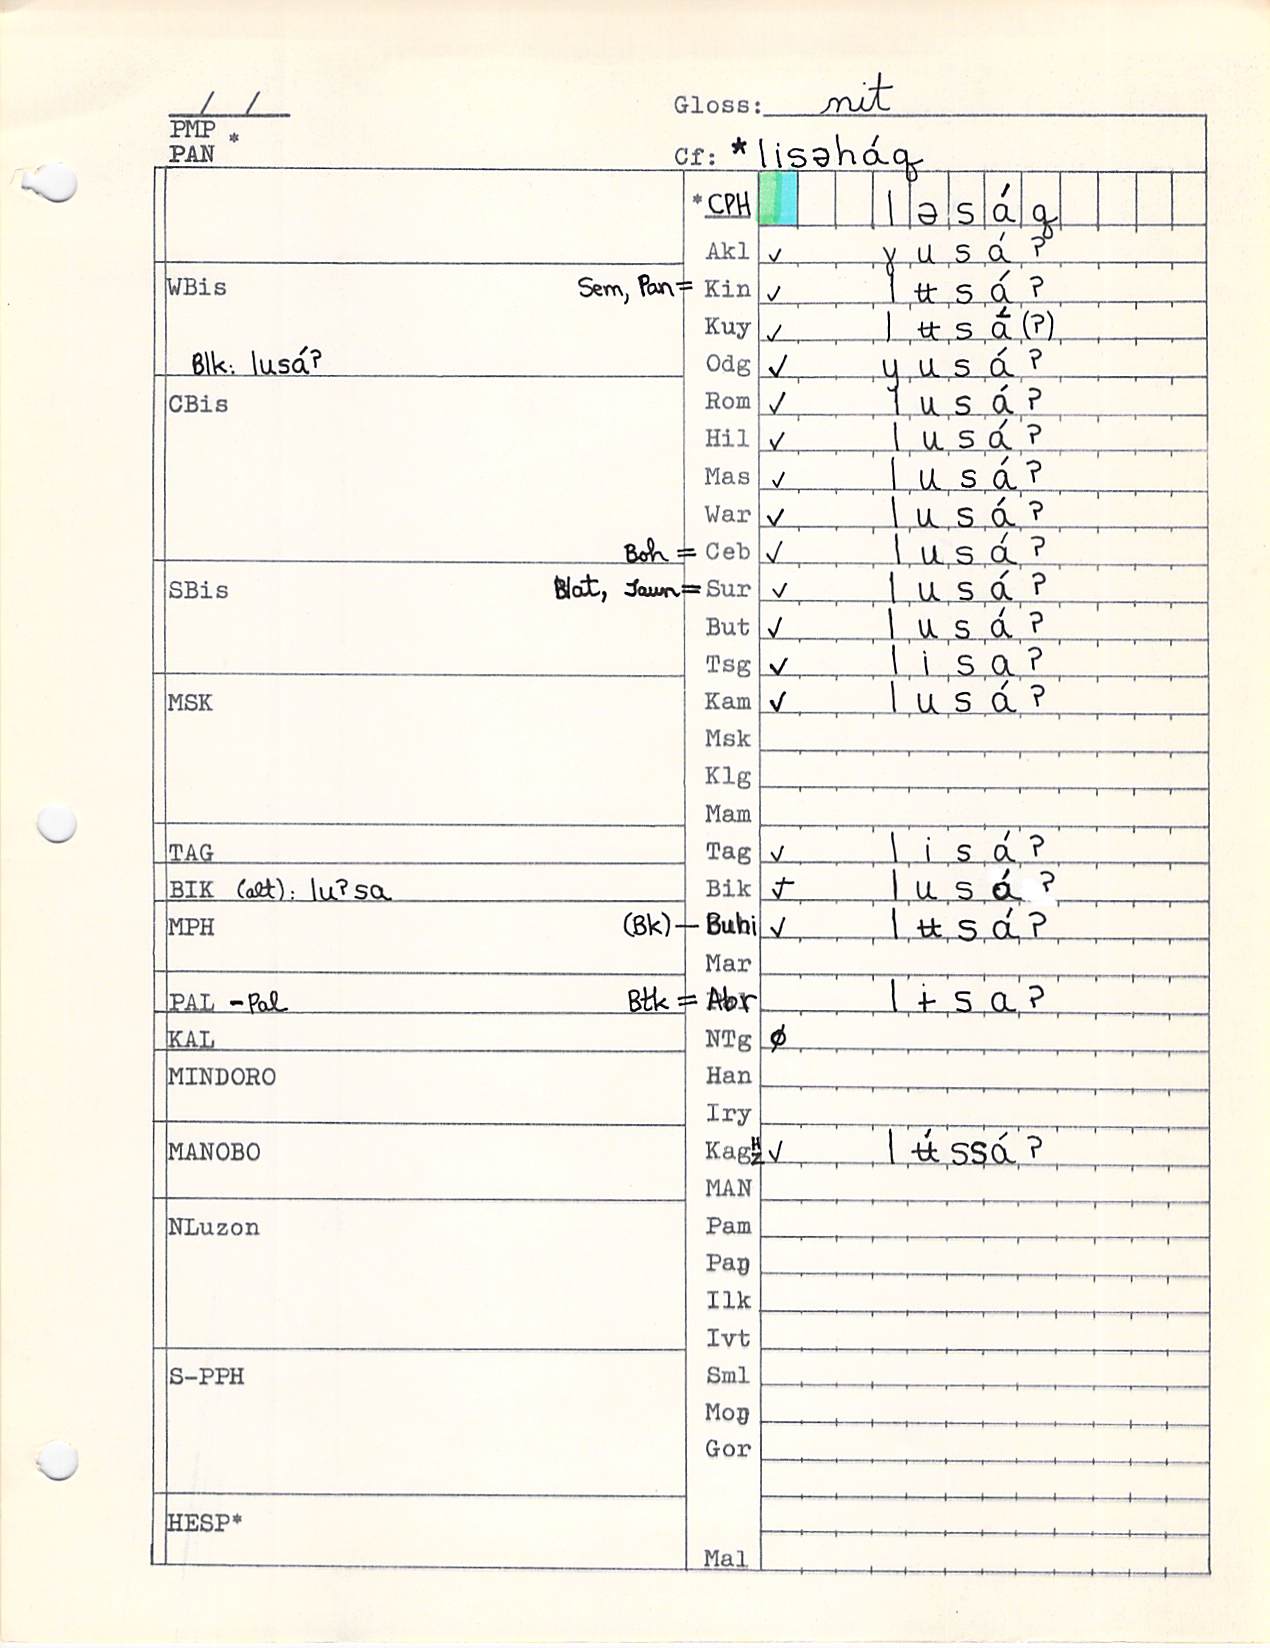 / / Gloss: nit
PMP *
PAN Cf: *lisəháq
*CPH ləsáq
Akl ✓ ɣusáʔ
WBis Sem, Pan = Kin ✓ lʉsáʔ
Kuy ✓ lʉsá(ʔ)
Blk: lusáʔ Odg ✓ yusáʔ
CBis Rom ✓ lusáʔ
Hil ✓ lusáʔ
Mas ✓ lusáʔ
War ✓ lusáʔ
Boh = Ceb ✓ lusáʔ
SBis Nat, Jaun = Sur ✓ lusáʔ
But ✓ lusáʔ
Tsg ✓ lisaʔ
MSK Kam ✓ lusáʔ
Msk
Klg
Mam
TAG Tag ✓ lisáʔ
BIK (alt): luʔsa Bik lusáʔ
MPH (Bk) — Buhi ✓ lʉsáʔ
Mar
PAL - Pal Btk = Abr lɨsaʔ
KAL NTg ∅
MINDORO Han
Iry
MANOBO Kag ✓ lʉ́ssáʔ
MAN
NLuzon Pam
Paŋ
Ilk
Ivt
S-PPH Sml
Moŋ
Gor
HESP*
Mal